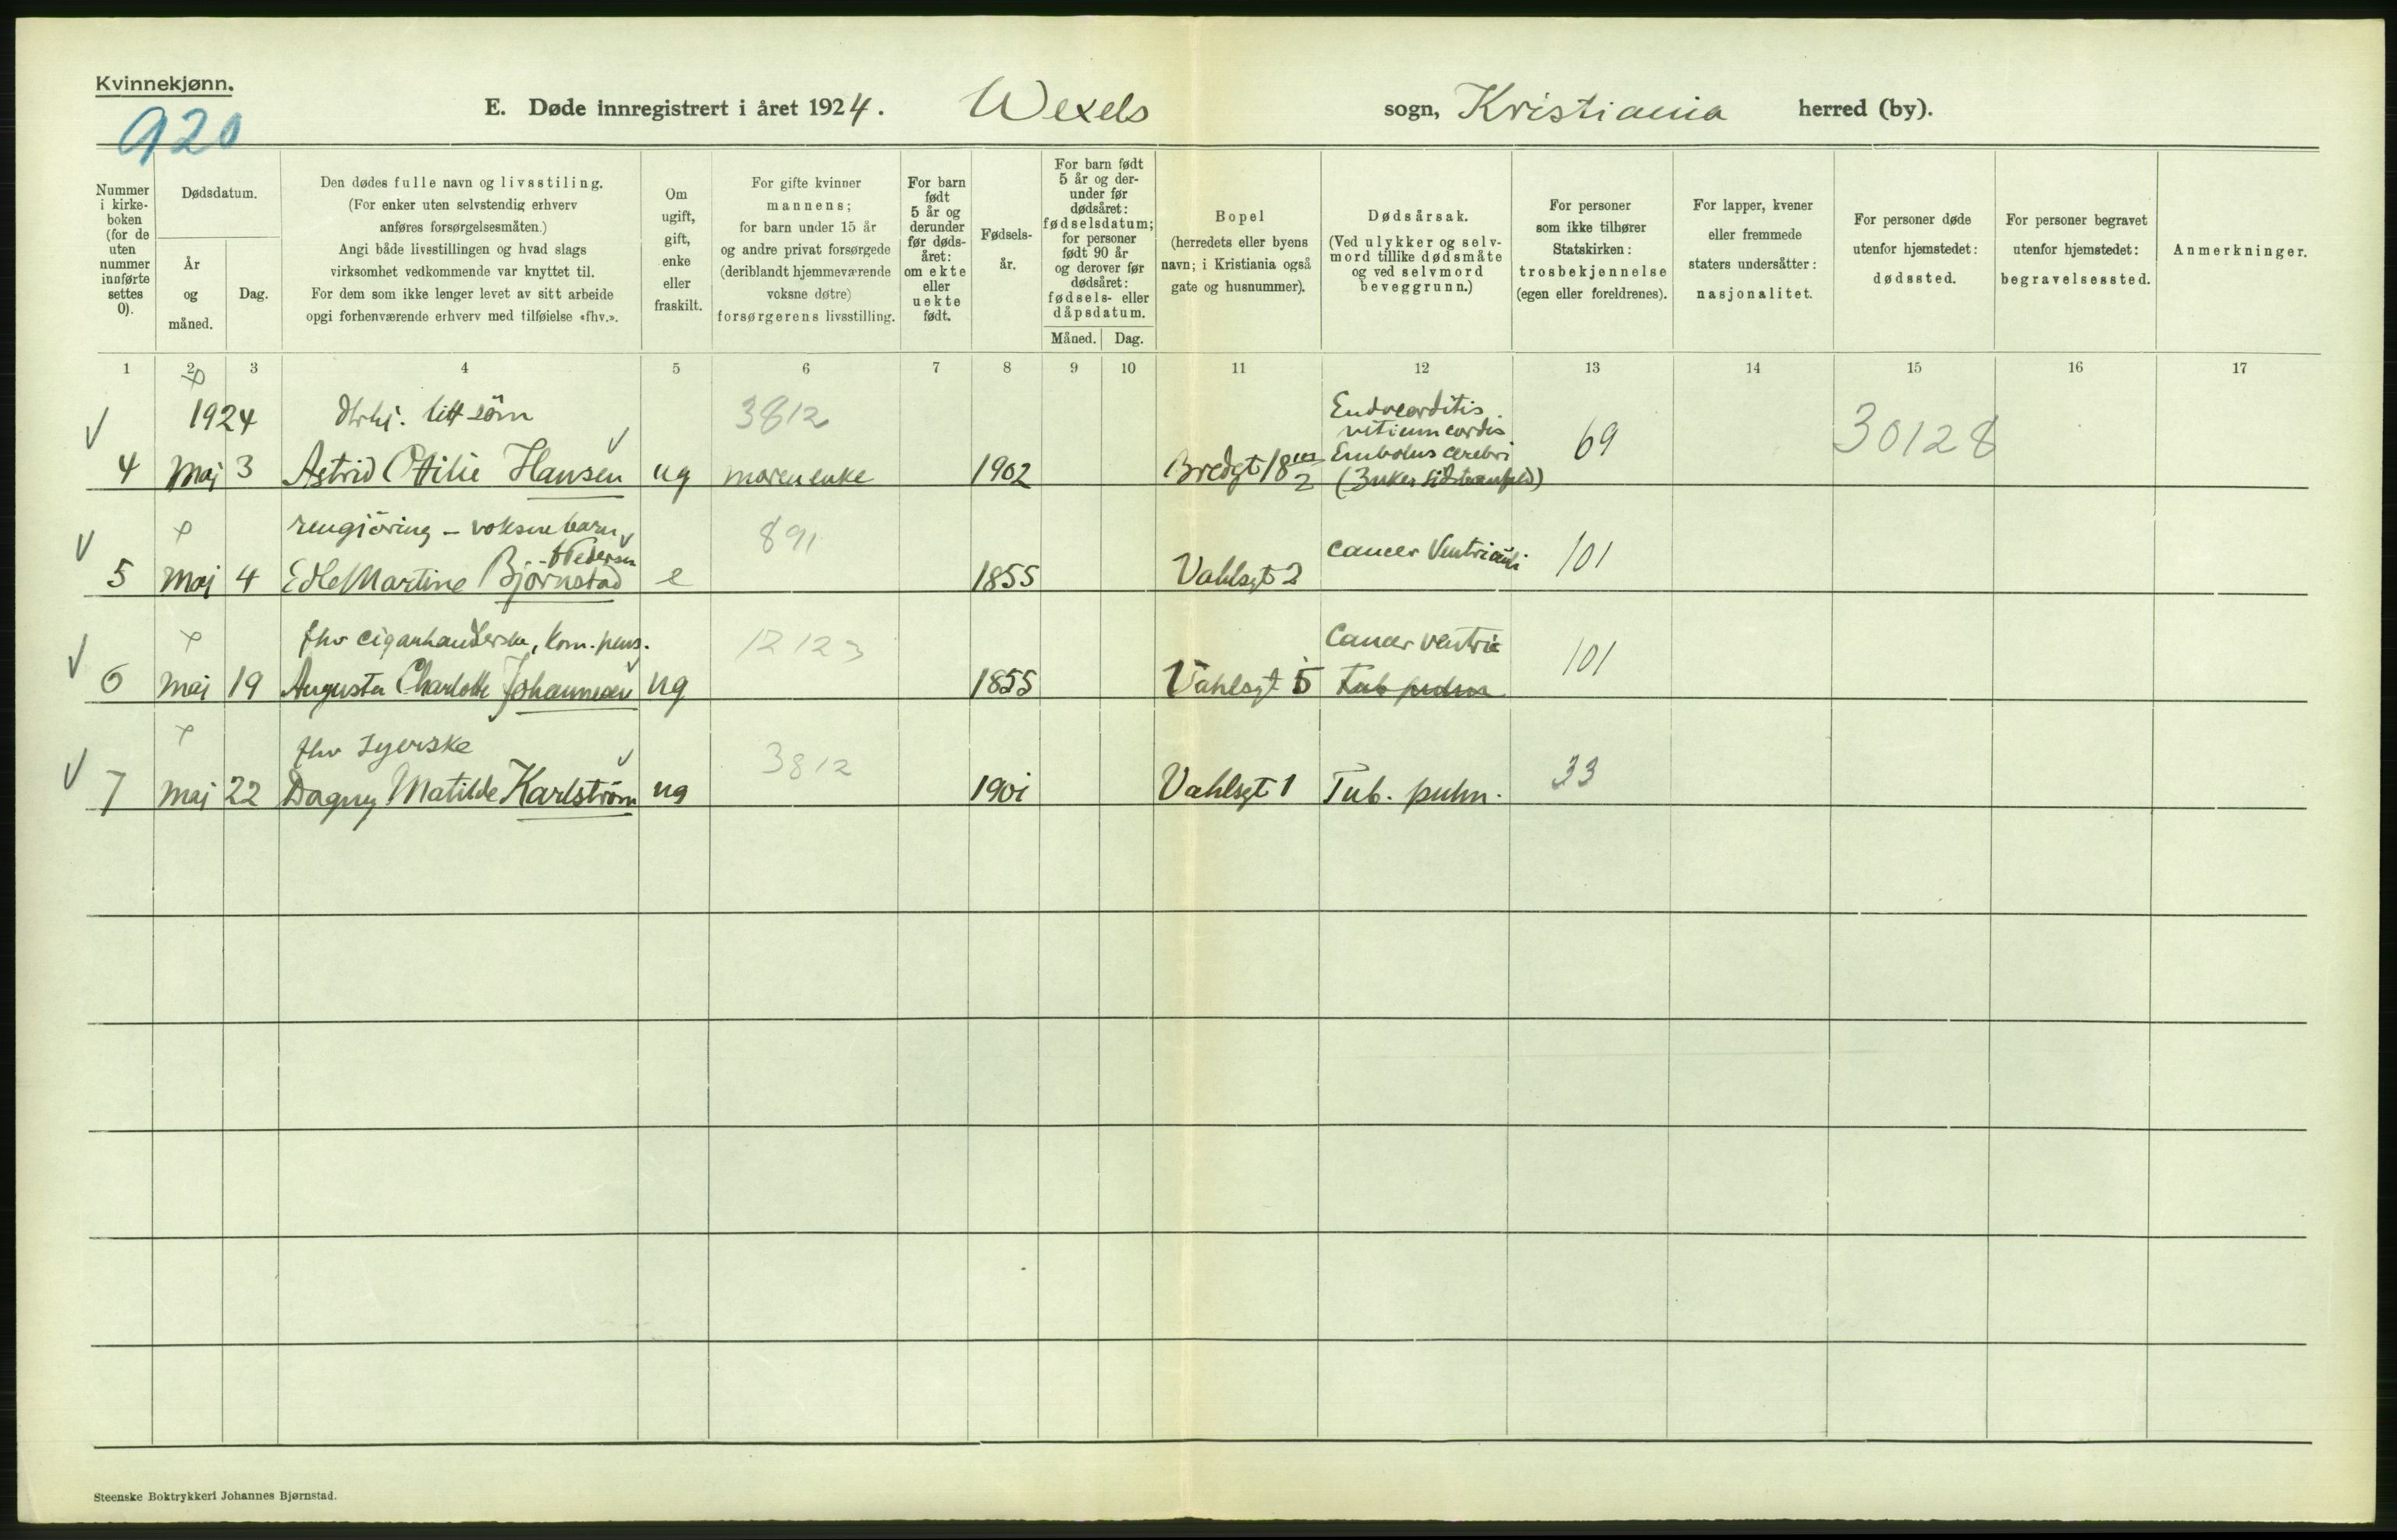 Kvinnekjønn.
920
E. Døde innregistrert i året 1924. Wexels sogn, Kristiania herred (by).
Nummer i kirke- boken (for de uten nummer innførte settes 0).
Dødsdatum.
År og måned.
Dag.
Den dødes fulle navn og livsstiling.
(For enker uten selvstendig erhverv
anføres forsørgelsesmåten.)
Angi både livsstillingen og hvad slags
virksomhet vedkommende var knyttet til.
For dem som ikke lenger levet av sitt arbeide
opgi forhenværende erhverv med tilføielse «fhv.».
Om ugift, gift, enke eller fraskilt.
For gifte kvinner
mannens;
for barn under 15 år
og andre privat forsørgede
(deriblandt hjemmeværende
voksne døtre)
forsørgerens livsstilling.
For barn født 5 år og derunder før døds- året: om ekte eller uekte født.
Fødsels- år.
For barn født 5 år og der- under før dødsåret: fødselsdatum; for personer født 90 år og derover før dødsåret: fødsels- eller dåpsdatum.
Måned. Dag.
Bopel
(herredets eller byens
navn; i Kristiania også
gate og husnummer).
Dødsårsak.
(Ved ulykker og selv-
mord tillike dødsmåte
og ved selvmord
beveggrunn.)
For personer
som ikke tilhører
Statskirken:
trosbekjennelse
(egen eller foreldrenes).
For lapper, kvener
eller fremmede
staters undersåtter:
nasjonalitet.
For personer døde
utenfor hjemstedet:
dødssted.
For personer begravet
utenfor hjemstedet:
begravelsessted.
Anmerkninger.
1 2 3 4 5 6 7 8 9 10 11 12 13 14 15 16 17
1924 litt søm 3812 Endocarditis
vitium cordis
4 Maj 3 Astrid Otilie Hansen ug moren enke 1902 Bredgt 18 Embolus cerebri 69 30128
rengjöring - voksne barn 891
f. Pedersen
5 Maj 4 Edle Martine Bjørnstad e 1855 Vahlsgt 2 Cancer Ventriculi 101
fhv cigarhandlerske, kom. pens. 12123 Cancer ventric
6 Maj 19 Augusta Charlotte Johannesen ug 1855 Vahlsgt 5 Tub pulm 101
fhv syerske 3812
7 Maj 22 Dagny Matilde Karlström ug 1901 Vahlsgt 1 Tub. pulm. 33
Steenske Boktrykkeri Johannes Bjørnstad.